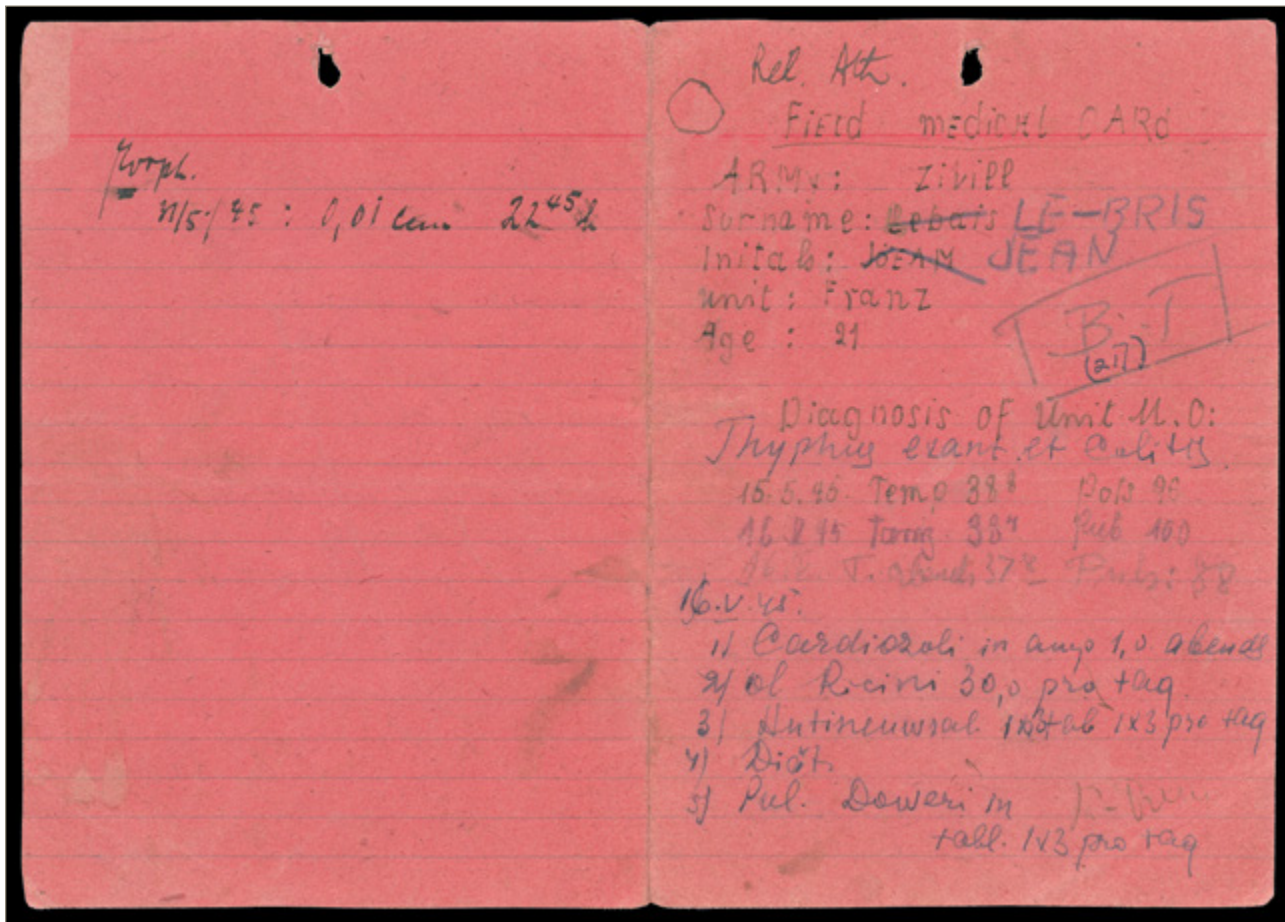 Morph.
21/5/45 : 0,01 ccm 22 45 h
Rel. Ath.
FiEld mEdicHl CARd
ARMy: Zivill
Surname: Lebais LE-BRIS
Initals: JOEAM JEAN
unit: Franz
Age : 21
B-I
(217)
Diagnosis of Unit M.O:
Thyphus exant. et Colitis
15.5.45. Temp 38 8 Pols 90
16 V 45 Tmorg. 38 4 Puls 100
T. abends 37 8 Puls: 88
16.V.45.
1) Cardiozoli in amp 1,0 abends
2) ol Ricini 30,0 pro tag
3) Antineuwsal 1x3 pro tag
4) Diät.
5) Pul. Doweri in
tabl. 1x3 pro tag